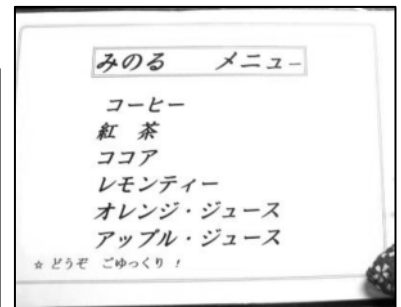 みのる　　メニュー
コーヒー
紅　茶
ココア
レモンティー
オレンジ・ジュース
アップル・ジュース
☆ どうぞ ごゆっくり !